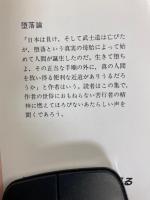 堕落論
「日本は負け、そして武士道は亡びた
が、堕落という真実の母胎によって始
めて人間が誕生したのだ。生きよ堕ち
よ、その正当な手順の外に、真の人間
を救い得る便利な近道がありうるだろ
うか」と作者はいう。読者はこの集で、
作者の世俗におもねらない苦行者の精
神に燃えてほろびないあたらしい声を
聞くであろう。